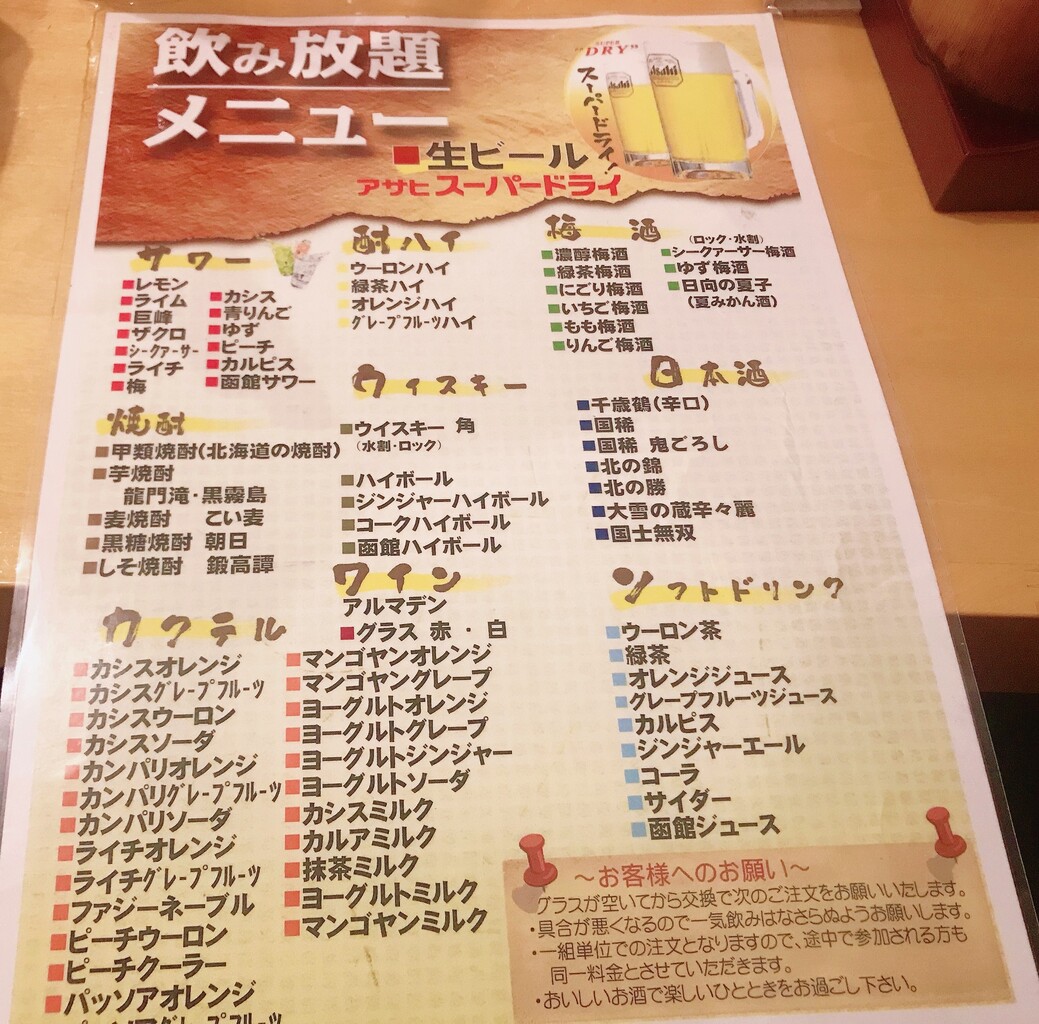 飲み放題
メニュー
SUPER
"DRY"
スーパードライ!
■生ビール
アサヒ スーパードライ
サワー
■レモン
■ライム
■巨峰
■ザクロ
■シークァーサー
■ライチ
■梅
■カシス
■青りんご
■ゆず
■ピーチ
■カルピス
■函館サワー
酎ハイ
ウーロンハイ
緑茶ハイ
オレンジハイ
グレープフルーツハイ
梅酒
(ロック・水割)
■濃醇梅酒
■緑茶梅酒
■にごり梅酒
■いちご梅酒
■もも梅酒
■りんご梅酒
■シークァーサー梅酒
■ゆず梅酒
■日向の夏子
(夏みかん酒)
焼酎
■甲類焼酎(北海道の焼酎)
■芋焼酎
龍門滝・黒霧島
■麦焼酎 こい麦
■黒糖焼酎 朝日
■しそ焼酎 鍛高譚
ウィスキー
■ウイスキー 角
(水割・ロック)
■ハイボール
■ジンジャーハイボール
■コークハイボール
■函館ハイボール
日本酒
■千歳鶴(辛口)
■国稀
■国稀 鬼ごろし
■北の錦
■北の勝
■大雪の蔵辛々麗
■国士無双
ワイン
アルマデン
■グラス 赤・白
カクテル
■カシスオレンジ
■カシスグレープフルーツ
■カシスウーロン
■カシスソーダ
■カンパリオレンジ
■カンパリグレープフルーツ
■カンパリソーダ
■ライチオレンジ
■ライチグレープフルーツ
■ファジーネーブル
■ピーチウーロン
■ピーチクーラー
■パッソアオレンジ
パッソアグレープフルーツ
■マンゴヤンオレンジ
■マンゴヤングレープ
■ヨーグルトオレンジ
■ヨーグルトグレープ
■ヨーグルトジンジャー
■ヨーグルトソーダ
■カシスミルク
■カルアミルク
■抹茶ミルク
■ヨーグルトミルク
■マンゴヤンミルク
ソフトドリンク
■ウーロン茶
■緑茶
■オレンジジュース
■グレープフルーツジュース
■カルピス
■ジンジャーエール
■コーラ
■サイダー
■函館ジュース
～お客様へのお願い～
グラスが空いてから交換で次のご注文をお願いいたします。
・具合が悪くなるので一気飲みはなさらぬようお願いします。
・一組単位での注文となりますので、途中で参加される方も
同一料金とさせていただきます。
・おいしいお酒で楽しいひとときをお過ごし下さい。